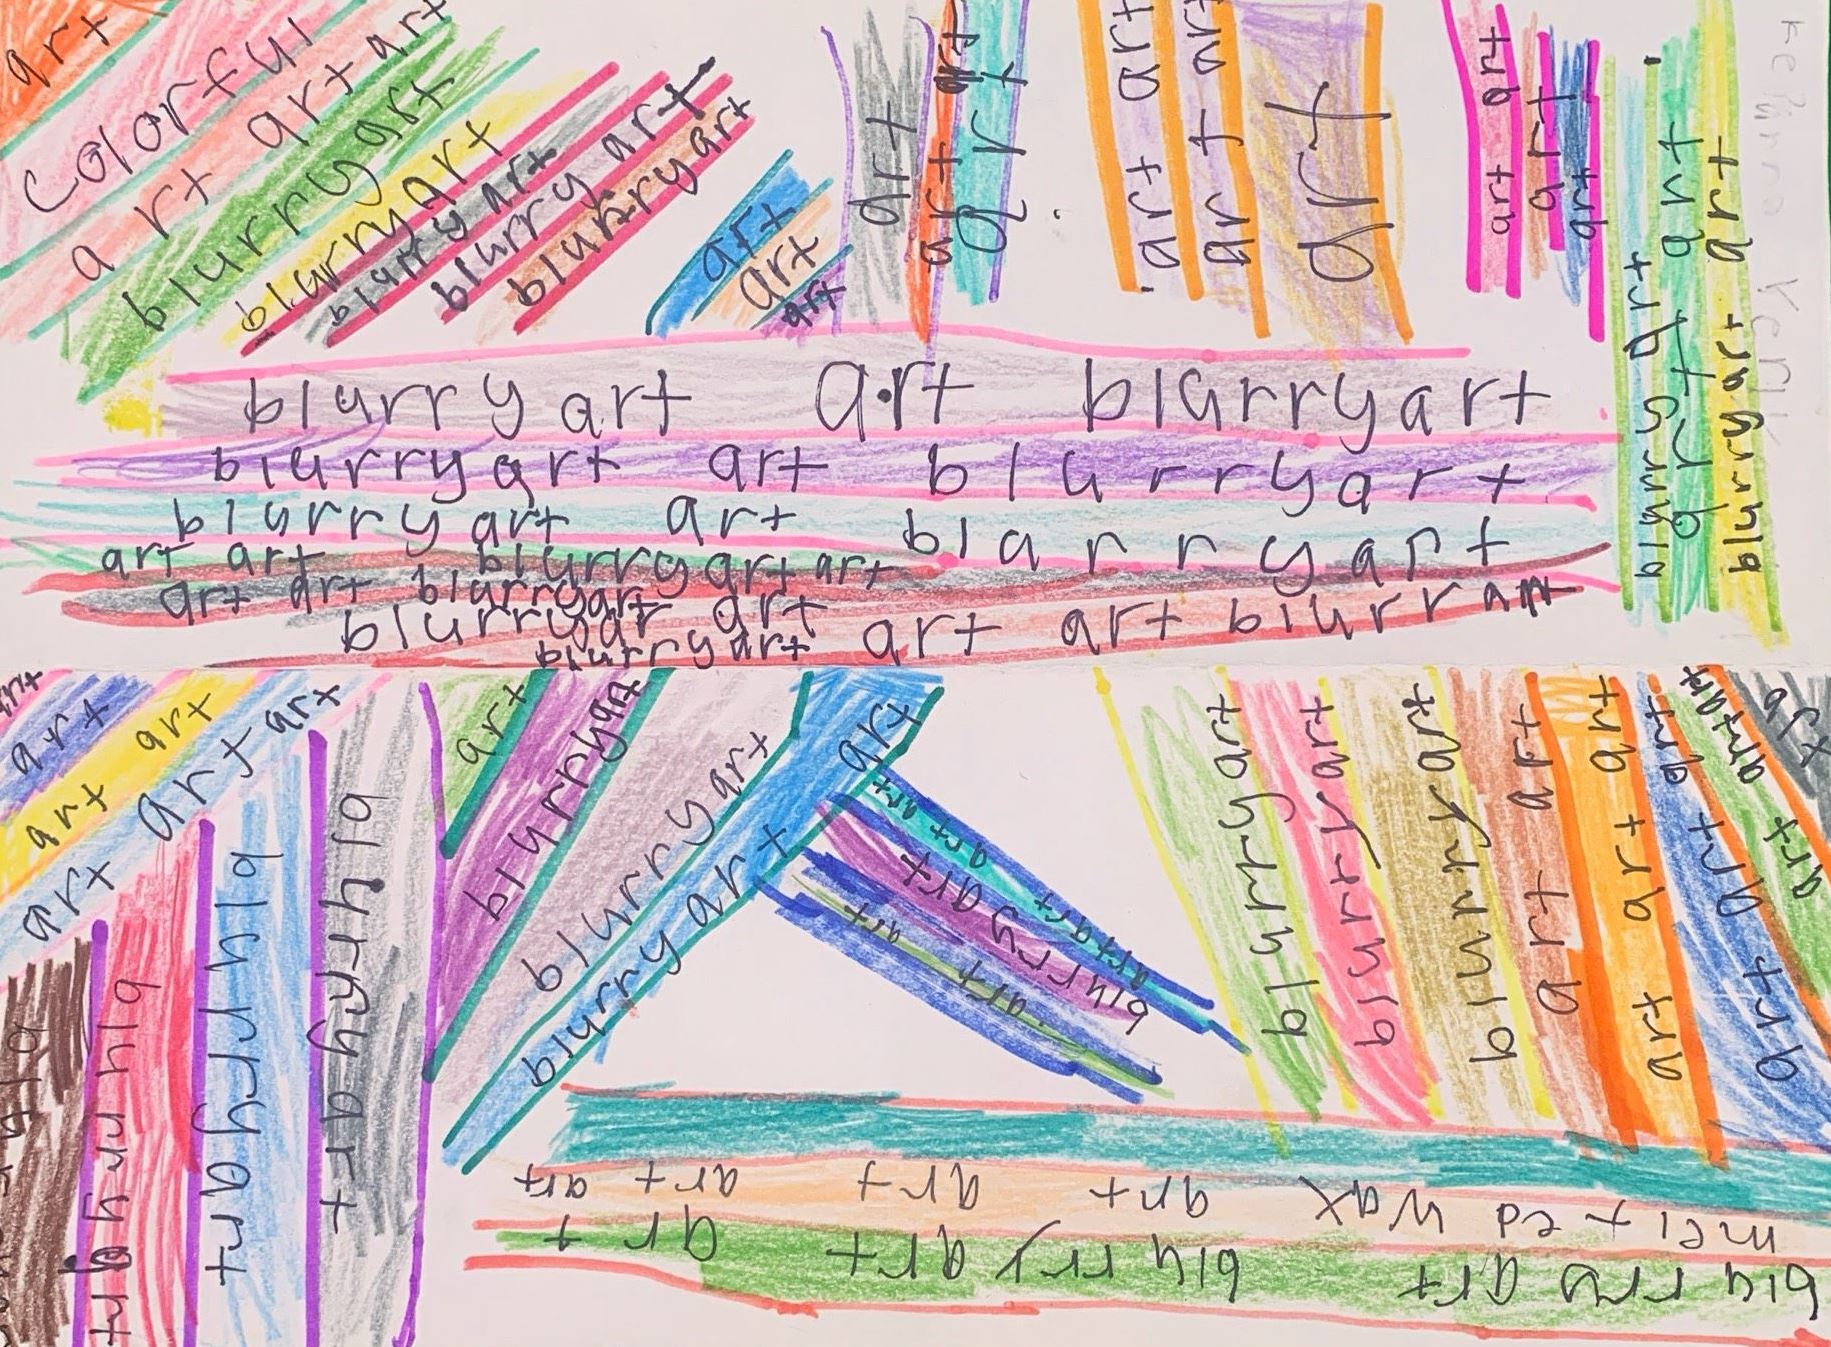 art
colorful
art art art
blurry art
blurry art
blurry art
blurry art
blurry art
art
art
art
art
art art art
art
art art
art art
art
art art
art
art
blurry art
art art
blurry art art
blurry art art blurry art
blurry art art blurry art
blurry art art blurry art
art art blurry art art
art art blurry art
blurry ar art art art blurr art
blurry art
art
art
art art
art art art
blurry art
blurry art
blurry art
art
blurry art
blurry art
blurry art art
art art art art
blurry art
art art
blurry art
blurry art
blurry art
art art
art art art
art art art
art art art
melted wax art art art art
blurry art blurry art art